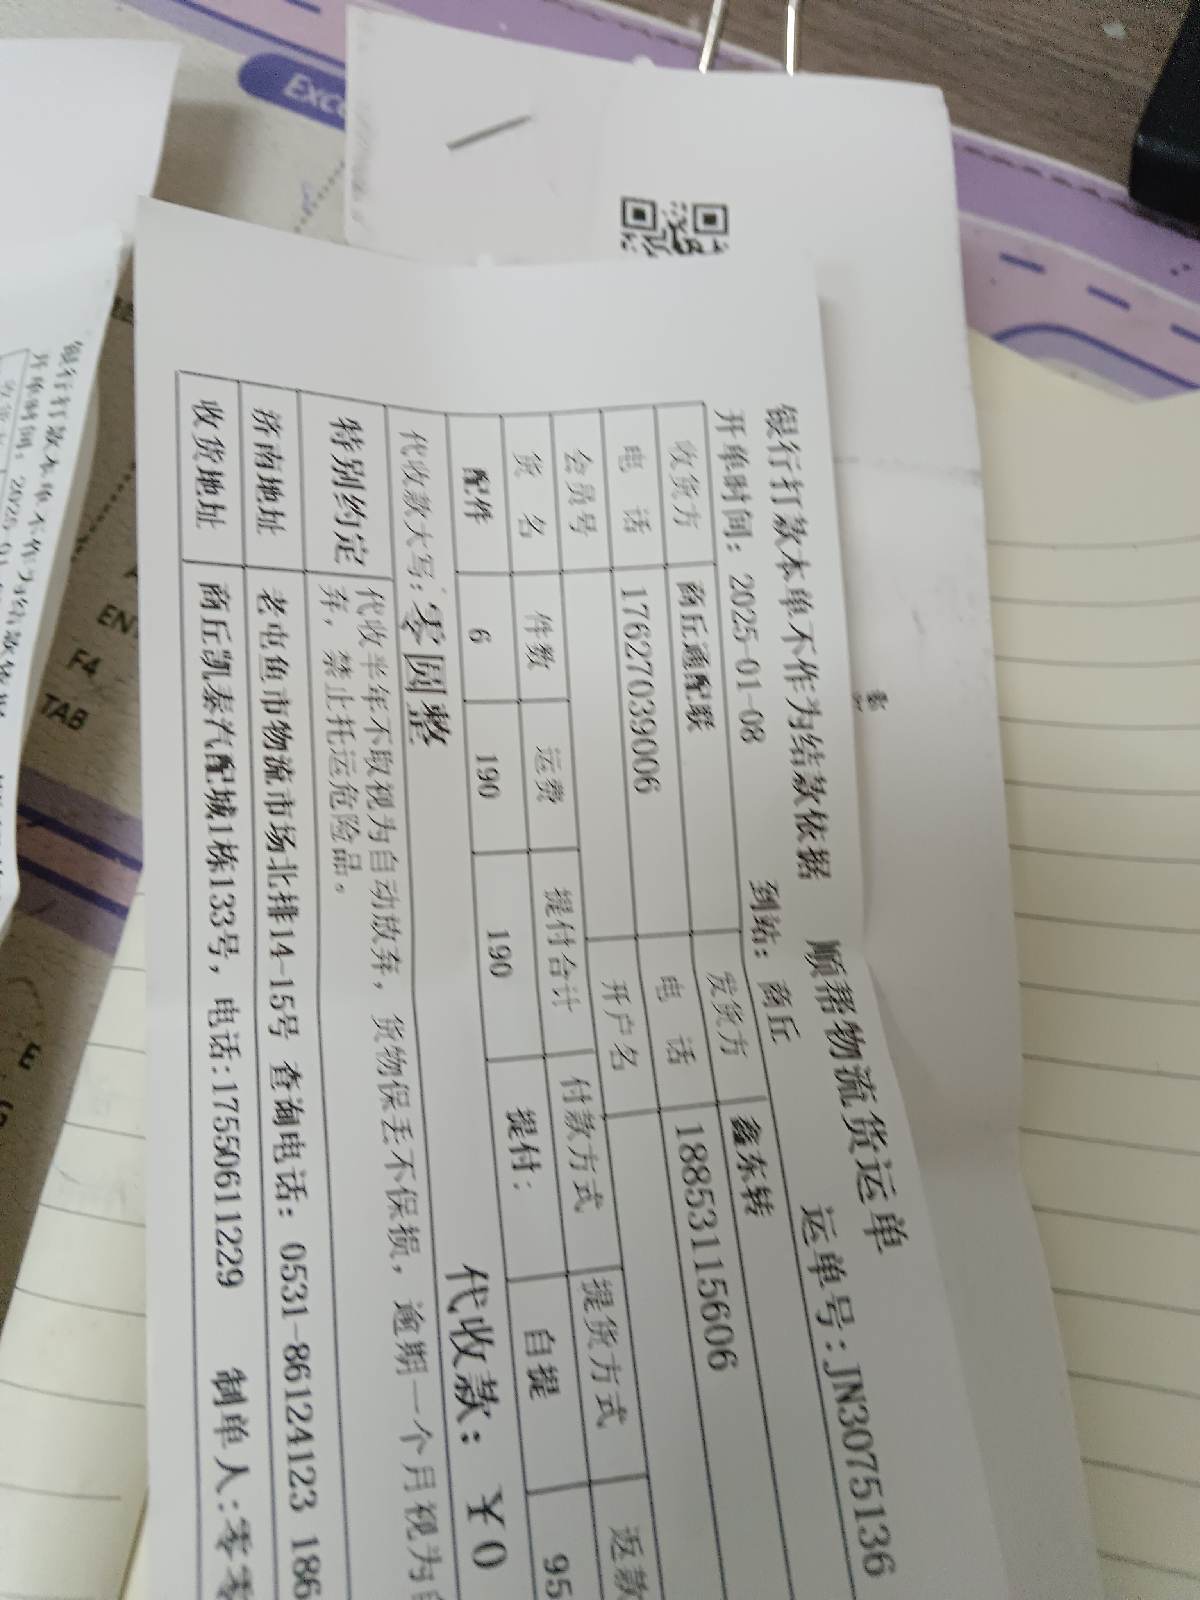 顺帮物流货运单
银行打款本单不作为结款依据
运单号:JN3075136
开单时间: 2025-01-08 到站: 商丘
收货方 商丘通配联 发货方 鑫东转
电 话 17627039006 电 话 18853115606
会员号 开户名
货 名 件数 运费 提付合计 付款方式 提货方式 返款
配件 6 190 190 提付: 自提 95
代收款大写: 零圆整 代收款: ¥0
特别约定 代收半年不取视为自动放弃, 货物保丢不保损, 逾期一个月视为自
弃, 禁止托运危险品。
济南地址 老屯鱼市物流市场北排14-15号 查询电话: 0531-86124123 186
收货地址 商丘凯泰汽配城1栋133号, 电话:17550611229 制单人:零零
银行打款本单不作为结款依据
开单时间: 2025-01
Exc
EN
F4
TAB
E